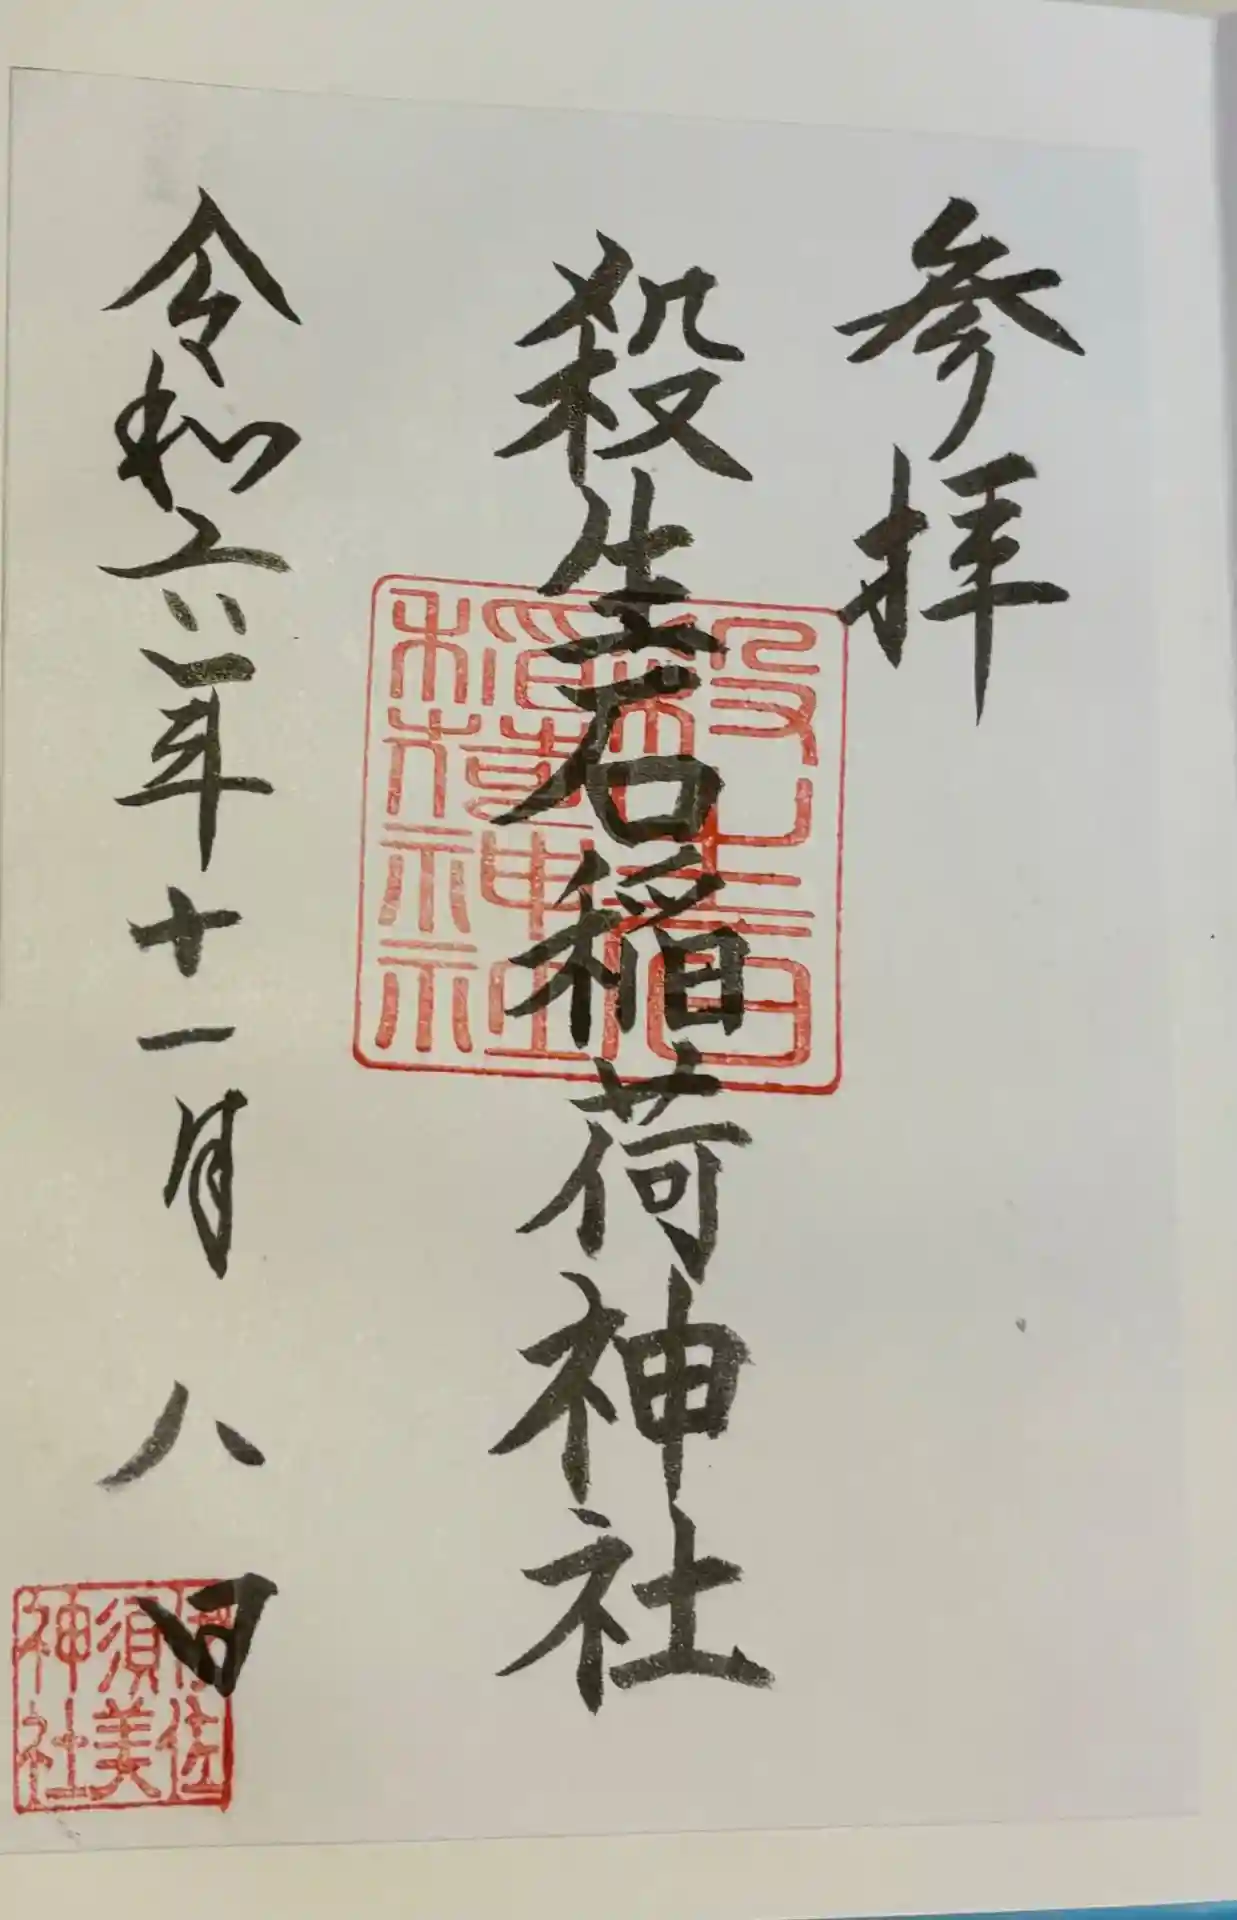 参拝
殺生石稲荷神社
殺生石
稲荷神社
令和六年十一月八日
伊佐
須美
神社